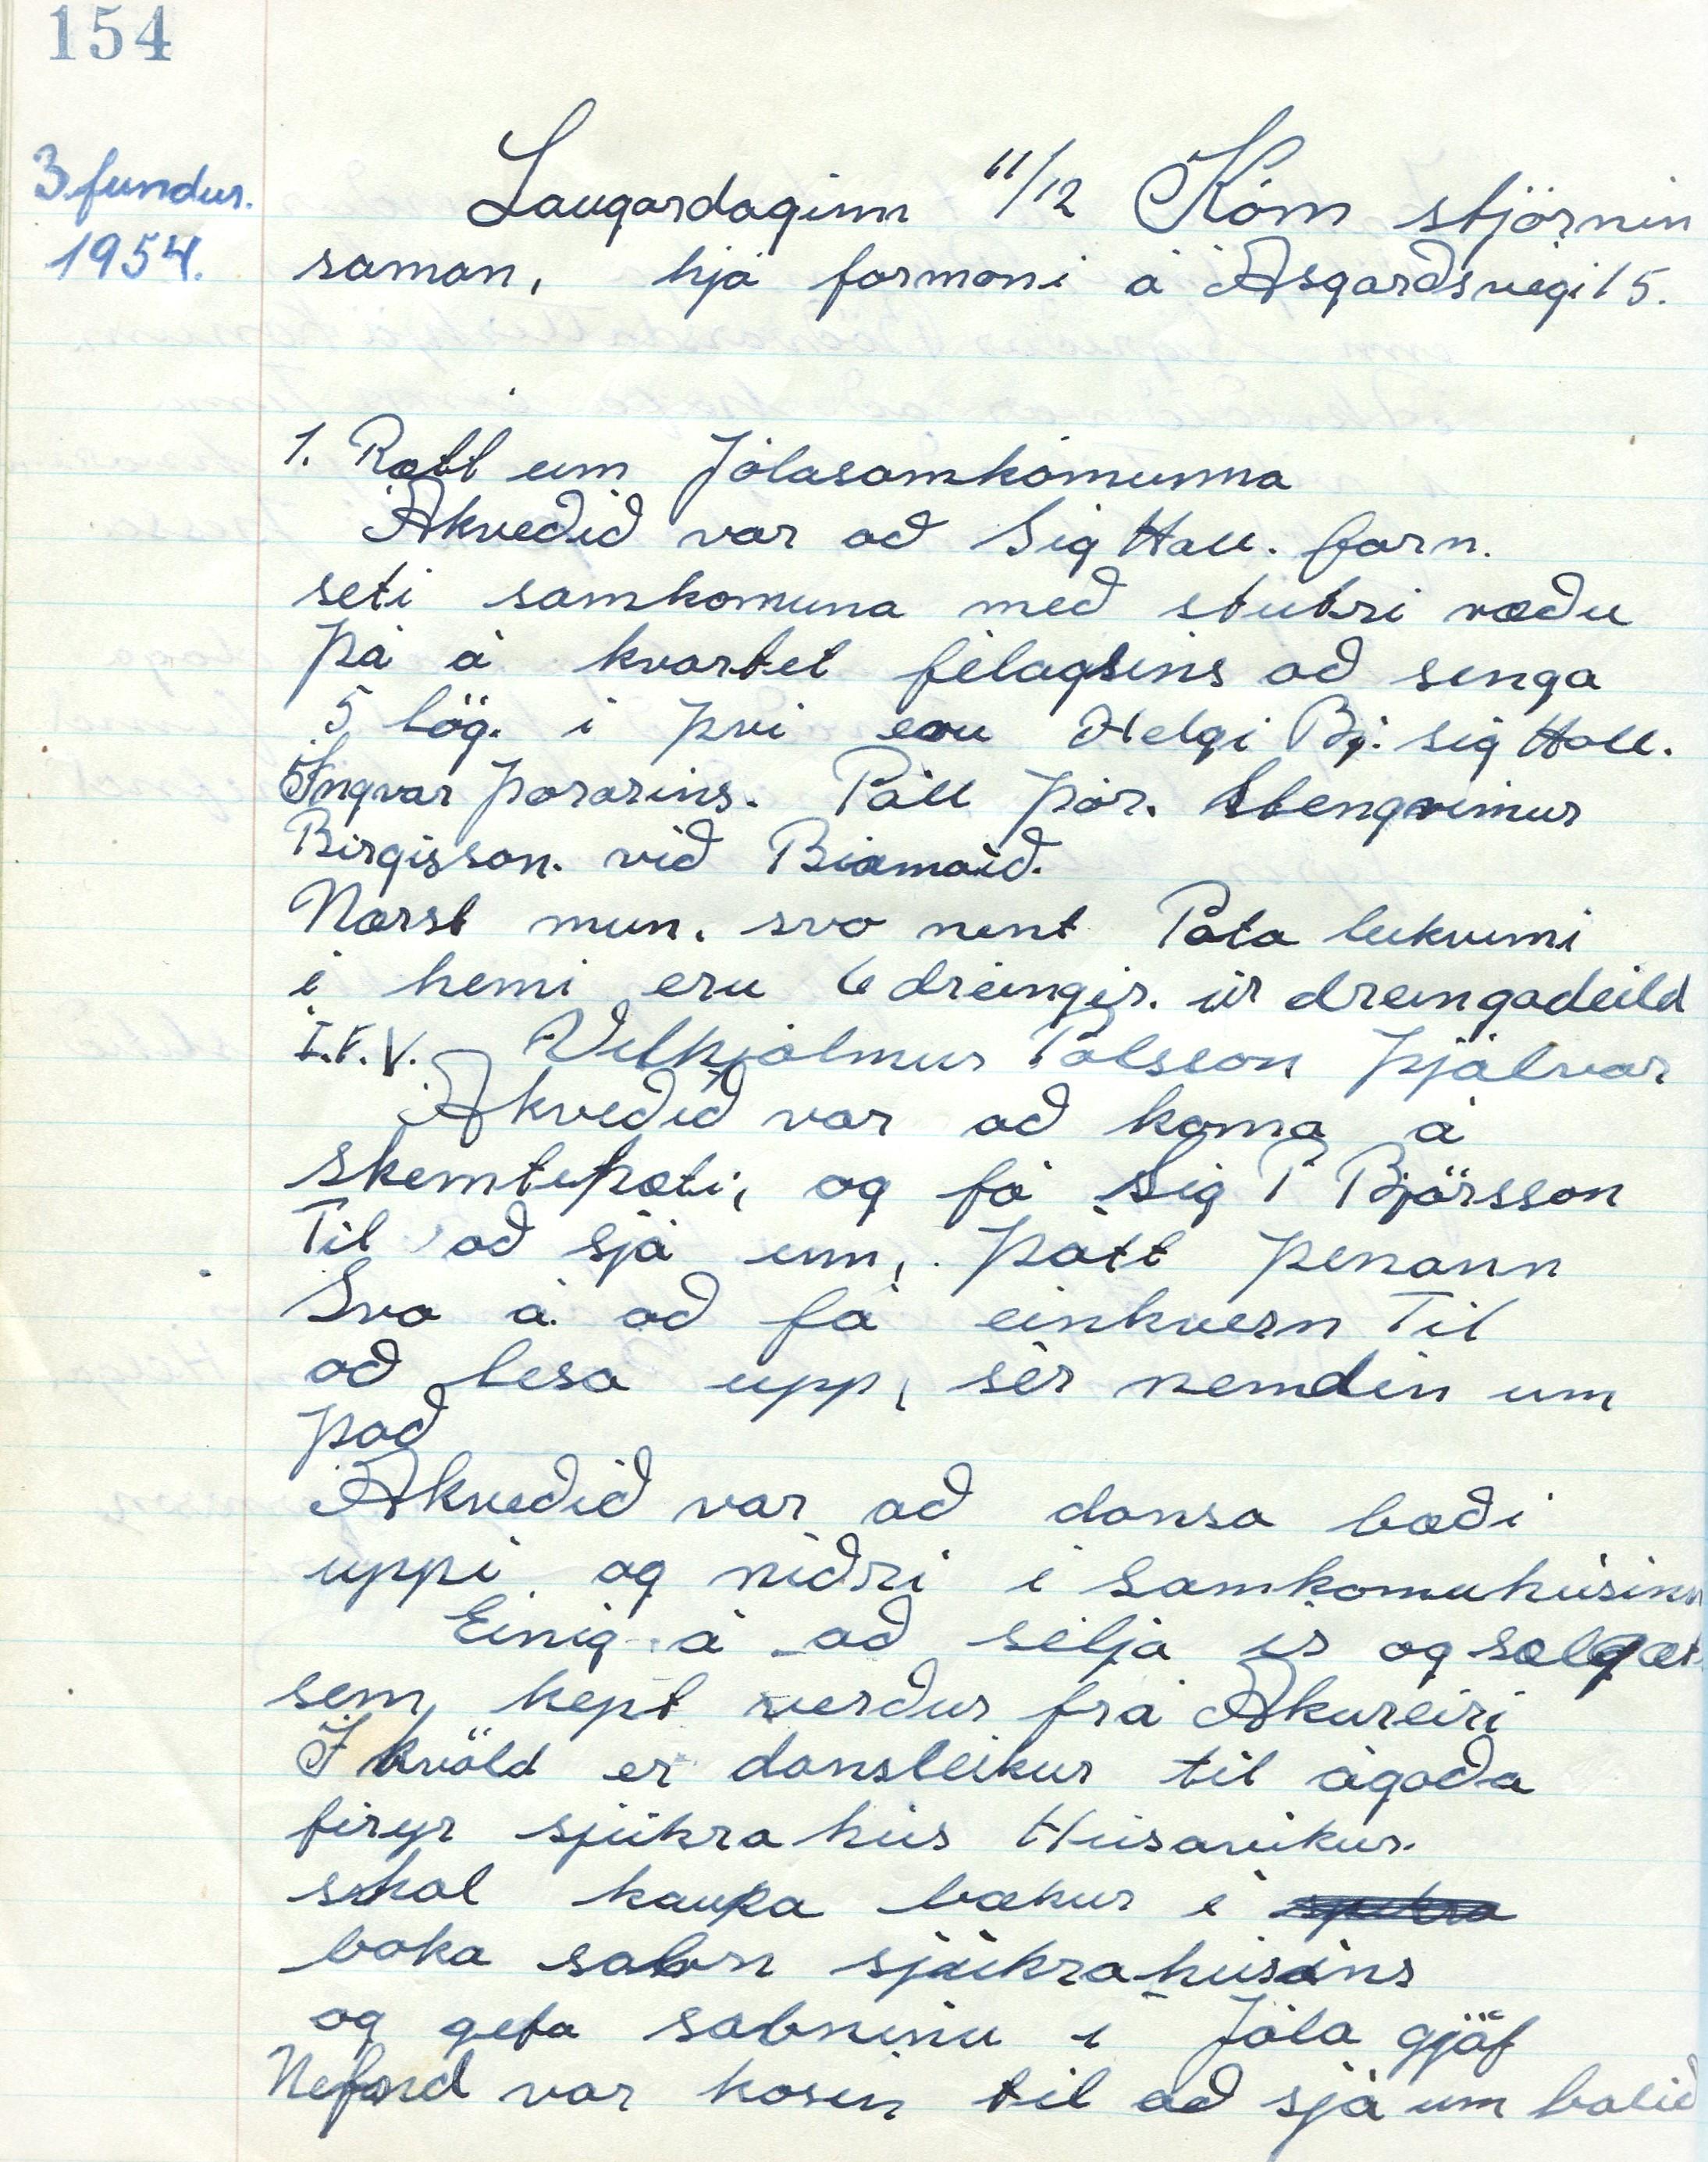 154
3. fundur.
1954.
Laugardaginn 11/12 Kom stjórnin
saman, hjá formoni á Ásgarðsvegi 15.
1. Rætt um Jólasamkomunna
Ákveðið var að Sig Hall. form.
seti samkomuna með stutri ræðu
þá á kvartet félagsins að senga
5 lög. í þvi eru Helgi Bj. Sig Hall.
Ingvar Þorarins. Páll Þór. Stengrimur
Birgisson. við Bíamaíð.
Nærst mun. svo nent Pata leikumi
i hemi eru 6 dreingir. úr dreingadeild
Í.F.V. Vilhjálmur Pálsson þjálvar
Ákveðið var að koma á
skemtiþæti, og fá Sig P Björsson
Til að sjá um, þátt þenann
Svo á að fá einhvern Til
að lesa upp, sér nemdin um
það
Ákveðið var að dansa bæði
uppi og niðri i samkomuhúsinu
Einig á að selja ís og sælgæt
sem kept verður frá Akureiri
Í kvöld er dansleikur til ágoða
firyr sjúkra hús Húsavikur.
skal kaupa bækur i
boka sabn sjúkrahúsins
og gefa sabninu i Jóla gjäf
Nefnd var kosin til að sjá um balið